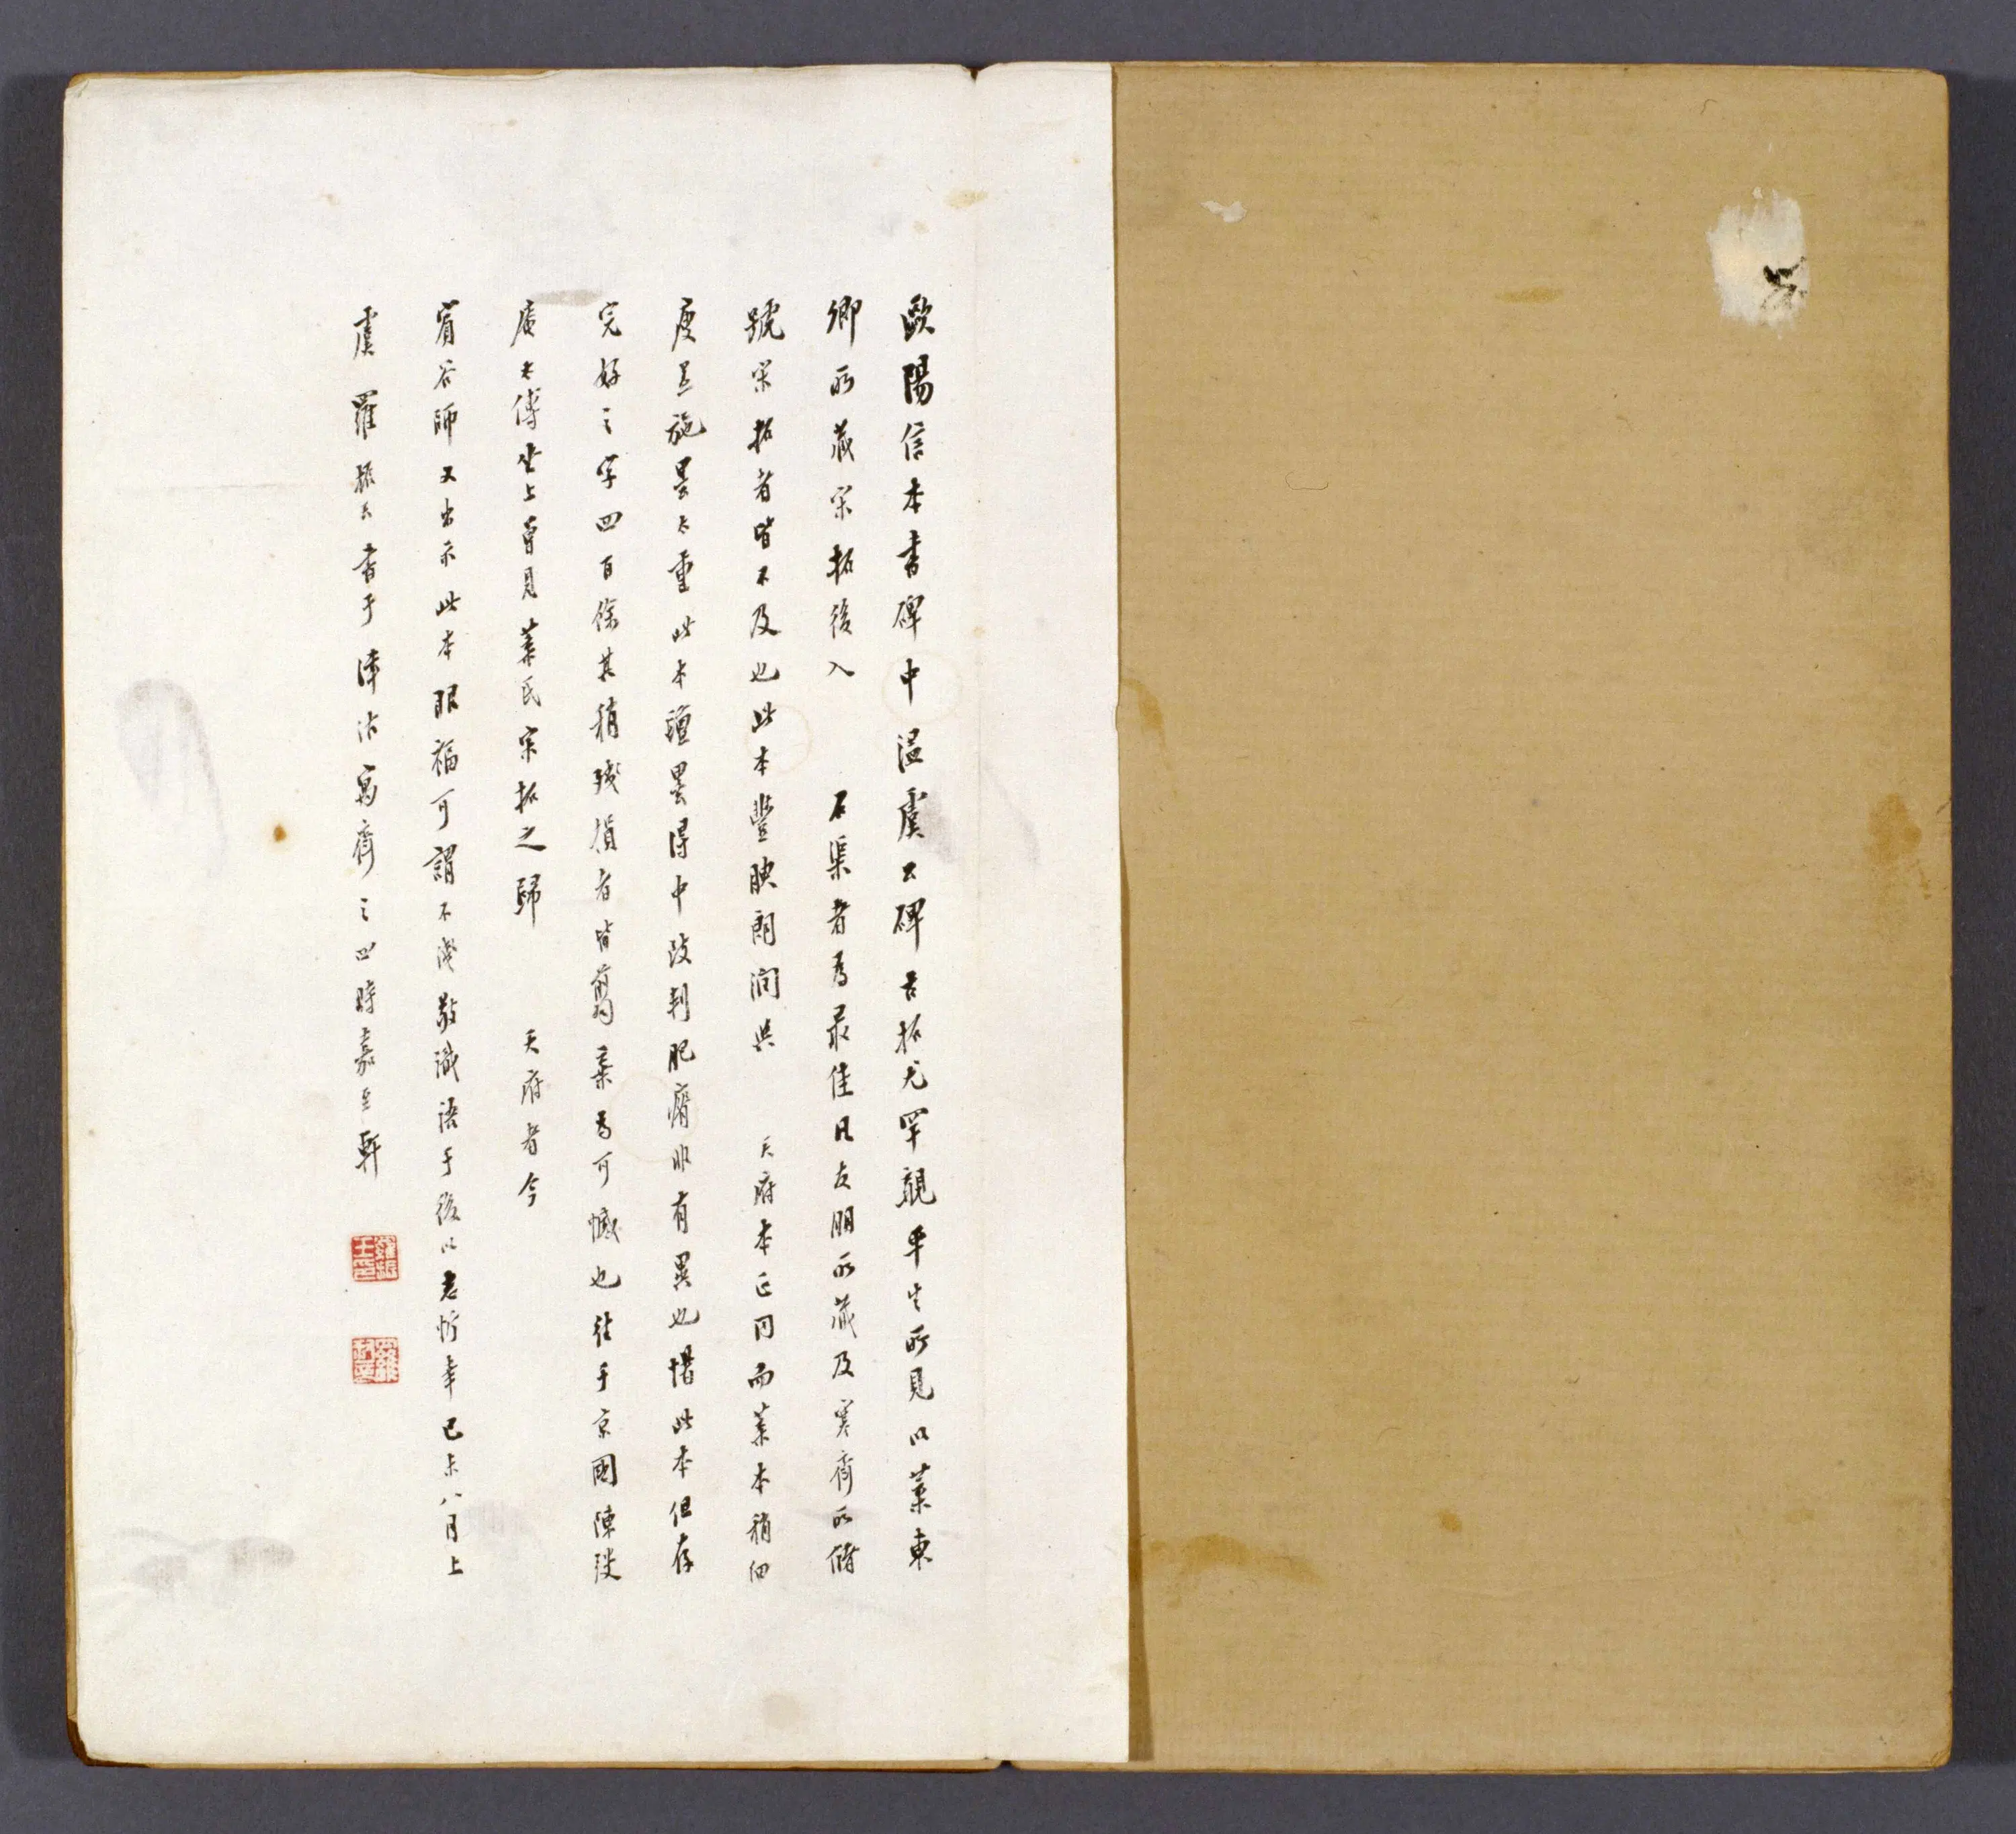 歐陽信本書碑中溫虞公碑古拓尤罕覯平生所見以葉東
卿所藏宋拓後入 石渠者為最佳凡友朋所藏及寒齋所儲
號宋拓者皆不及也此本豐腴朗潤與 天府本正同而葉本稍細
度是施墨太重此本氈墨得中故判肥瘠非有異也惜此本但存
完好之字四百餘其稍殘損者皆翦棄為可憾也往于京國陳
庵太傅坐上曾見葉氏宋拓之歸 天府者今
師又出示此本眼福可謂不淺敬識語于後以志忻幸己未八月上
虞羅振玉書于津沽寓齋之四時嘉至軒
羅振玉印
羅